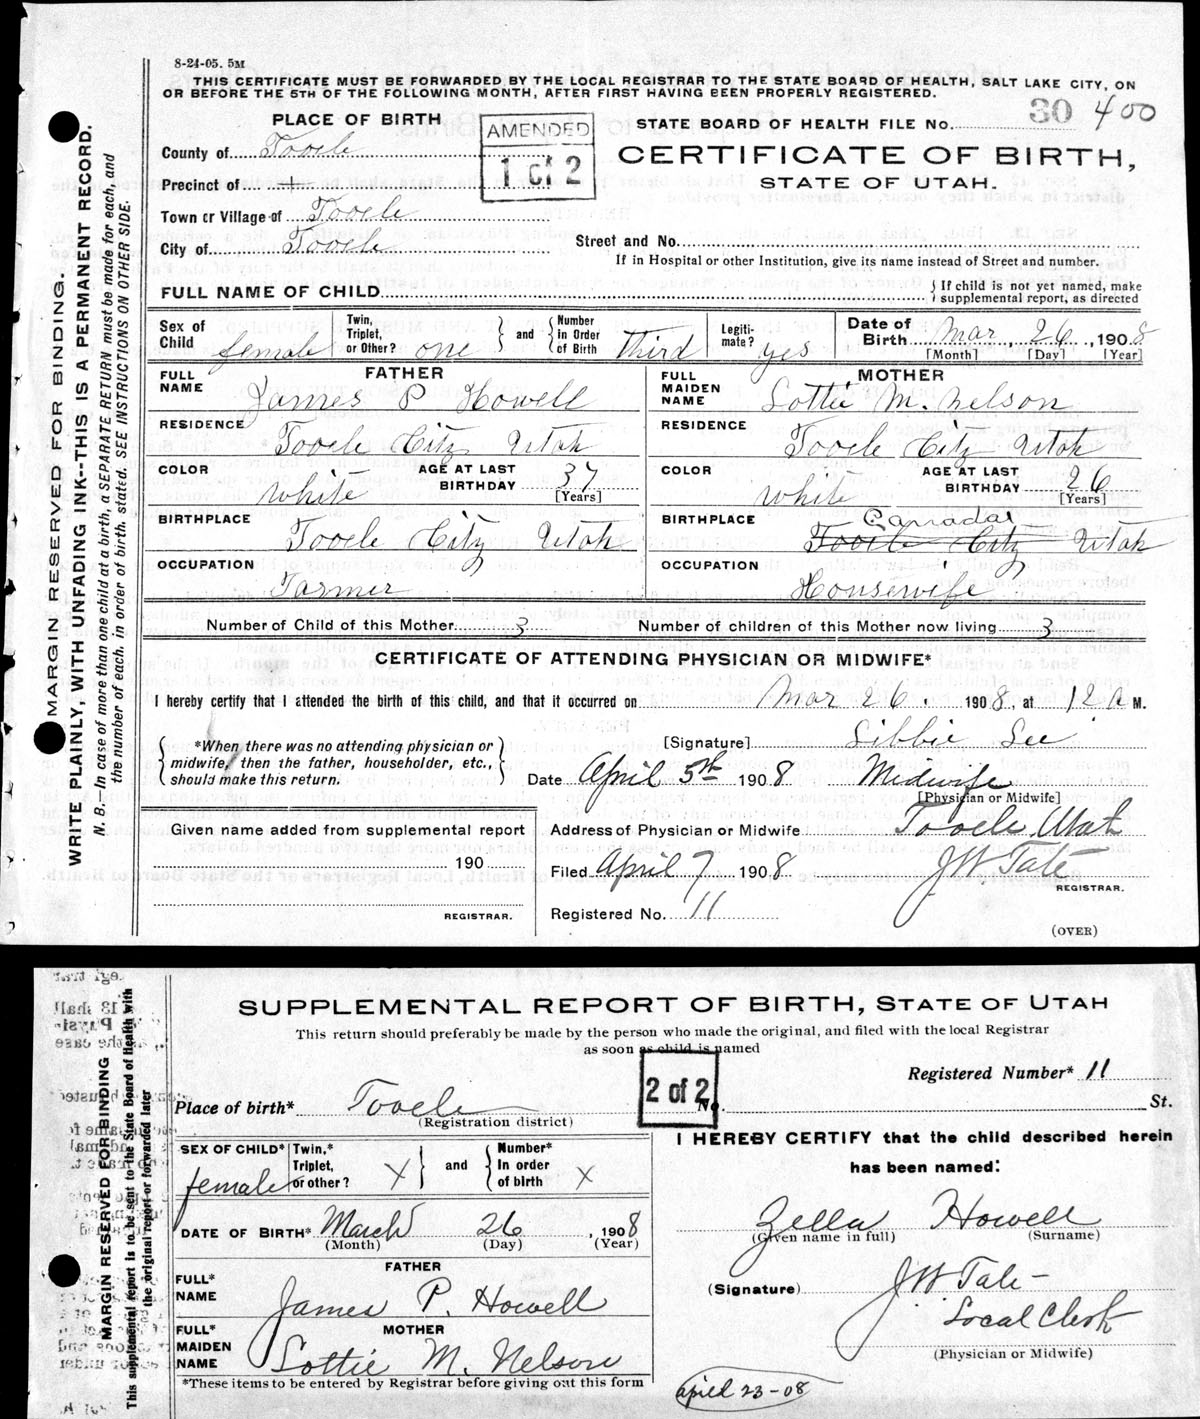 8-24-05. 5M
THIS CERTIFICATE MUST BE FORWARDED BY THE LOCAL REGISTRAR TO THE STATE BOARD OF HEALTH, SALT LAKE CITY, ON
OR BEFORE THE 5TH OF THE FOLLOWING MONTH, AFTER FIRST HAVING BEEN PROPERLY REGISTERED.
PLACE OF BIRTH
AMENDED
1 of 2
STATE BOARD OF HEALTH FILE No. 30 400
County of Tooele
CERTIFICATE OF BIRTH,
Precinct of
STATE OF UTAH.
Town or Village of Tooele
City of Tooele
Street and No.
If in Hospital or other Institution, give its name instead of Street and number.
FULL NAME OF CHILD
If child is not yet named, make
supplemental report, as directed
Sex of Child female Twin, Triplet, or Other? one and Number in Order of Birth third Legiti-mate? yes Date of Birth Mar, 26, 1908
[Month] [Day] [Year]
FATHER MOTHER
FULL NAME James P Howell FULL MAIDEN NAME Lottie M. Nelson
RESIDENCE Tooele City Utah RESIDENCE Tooele City Utah
COLOR White AGE AT LAST BIRTHDAY 37 [Years] COLOR White AGE AT LAST BIRTHDAY 26 [Years]
BIRTHPLACE Tooele City Utah BIRTHPLACE Canada Tooele City Utah
OCCUPATION Farmer OCCUPATION Housewife
Number of Child of this Mother 3 Number of children of this Mother now living 3
CERTIFICATE OF ATTENDING PHYSICIAN OR MIDWIFE*
I hereby certify that I attended the birth of this child, and that it occurred on Mar 26. 1908, at 12 a M.
*When there was no attending physician or
midwife, then the father, householder, etc.,
should make this return.
[Signature] Libbie Lee
Date April 5th 1908 Midwife
[Physician or Midwife]
Given name added from supplemental report
190
REGISTRAR.
Address of Physician or Midwife Tooele, Utah
Filed April 7 1908 J W Tate
REGISTRAR.
Registered No. 11
(OVER)
MARGIN RESERVED FOR BINDING.
WRITE PLAINLY, WITH UNFADING INK--THIS IS A PERMANENT RECORD.
N. B.—In case of more than one child at a birth, a SEPARATE RETURN must be made for each, and
the number of each, in order of birth, stated. SEE INSTRUCTIONS ON OTHER SIDE.
SUPPLEMENTAL REPORT OF BIRTH, STATE OF UTAH
This return should preferably be made by the person who made the original, and filed with the local Registrar
as soon as child is named
2 of 2
Registered Number* 11
Place of birth* Tooele No. St.
(Registration district)
SEX OF CHILD* female Twin,* Triplet, or other? X and Number* In order of birth X
I HEREBY CERTIFY that the child described herein
has been named:
DATE OF BIRTH* March 26, 1908
(Month) (Day) (Year)
Zella Howell
(Given name in full) (Surname)
FATHER
FULL* NAME James P. Howell
(Signature) J W Tate
Local Clerk
(Physician or Midwife)
MOTHER
FULL* MAIDEN NAME Lottie M. Nelson
*These items to be entered by Registrar before giving out this form
april 23-08
MARGIN RESERVED FOR BINDING
This supplemental report is to be sent to the State Board of Health with
the original report or forwarded later